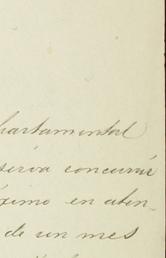 partamental
serva concurrir
óximo en aten-
de un mes